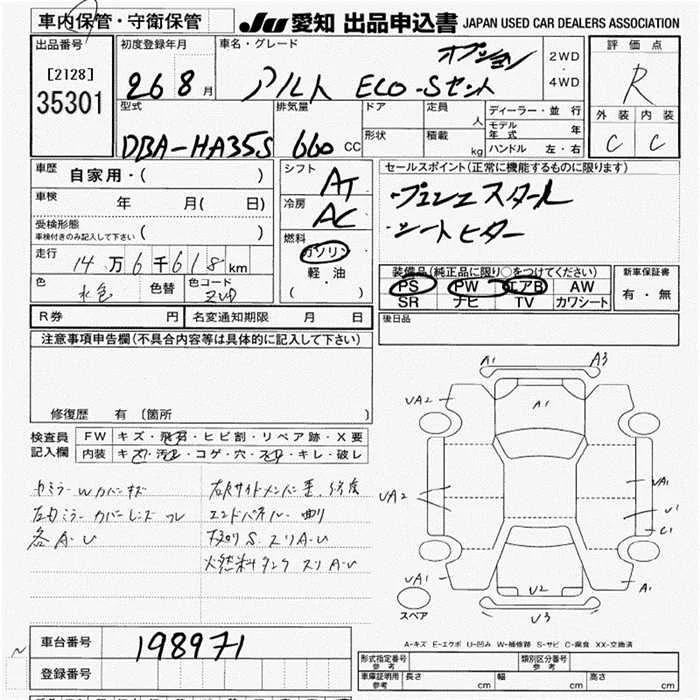 車内保管・守衛保管
JU 愛知 出品申込書 JAPAN USED CAR DEALERS ASSOCIATION
出品番号
[2128]
35301
初度登録年月
26 8月
車名・グレード
アルト ECO-Sセット
2WD
・
4WD
評価点
R
外装 内装
C C
型式
DBA-HA35S
排気量
660 CC
ドア
形状
定員
人
積載
kg
ディーラー・並行
モデル年式 年
ハンドル 左・右
車歴
自家用・( )
車検
年 月( 日)
受検形態
車検付きのみ記入して下さい ( )
走行
14万6千618km
色
水色
色替
色コード
シフト
AT
冷房
AC
燃料
ガソリン
軽油
( )
セールスポイント(正常に機能するものに限ります)
・プッシュスタート
・シートヒーター
装備品(純正品に限り○をつけてください)
PS PW エアB AW
SR ナビ TV カワシート
新車保証書
有・無
後日品
R券 円 名変通知期限 月 日
注意事項申告欄(不具合内容等は具体的に記入して下さい)
修復歴 有 〔箇所 〕
検査員記入欄
FW キズ・飛石・ヒビ割・リペア跡・X要
内装 キズ・汚れ・コゲ・穴・スレ・キレ・破レ
左右ミラーカバーレンズ ワレ
各A・U
エンドパネル 曲り
下廻り S スリA・U
燃料タンク スリA・U
A1 A3
UA2
A1
UA2
UA1
U1
C1
UA1
U2
A1
U3
スペア
A-キズ E-エクボ U-凹み W-補修跡 S-サビ C-腐食 XX-交換済
車台番号
198971
登録番号
形式指定番号 参考
類別区分番号 参考
車庫証明用 参考 長さ cm 幅 cm 高さ cm